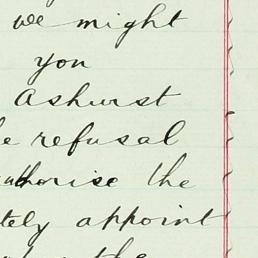 we might
you
Ashurst
refusal
authorise the
tely appoint
the